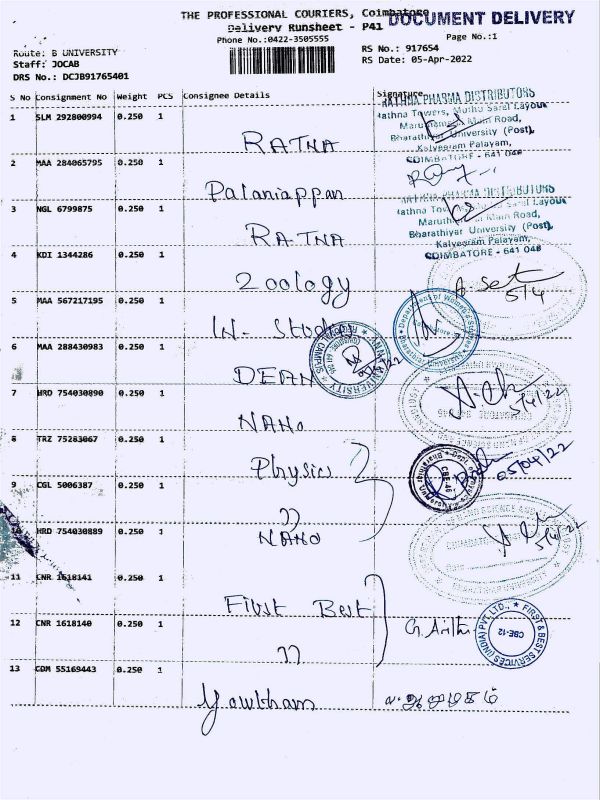 THE PROFESSIONAL COURIERS, Coimbatore
DOCUMENT DELIVERY
Delivery Runsheet - P41
Phone No.:0422-3505555
Page No.:1
Route: B UNIVERSITY
RS No.: 917654
Staff: JOCAB
RS Date: 05-Apr-2022
DRS No.: DCJB91765401
S No Consignment No Weight PCS Consignee Details Signature
1 SLM 292800994 0.250 1
RATNA
RATHNA PHARMA DISTRIBUTORS
Rathna Towers, Muthu Saral Layout
Main Road,
Bharathiyar University (Post),
Kalveeram Palayam,
COIMBATORE - 641 046
2 MAA 284065795 0.250 1
Palaniappan
3 NGL 6799875 0.250 1
RATNA
RATHNA PHARMA DISTRIBUTORS
Main Road,
Bharathiyar University (Post),
Kalveeram Palayam,
COIMBATORE - 641 046
4 KDI 1344286 0.250 1
Zoology
5/4
5 MAA 567217195 0.250 1
W- Studies
Department of Women's Studies
6 MAA 288430983 0.250 1
DEAN
5/4/22
7 HRD 754030890 0.250 1
NANO
5/4/22
8 TRZ 75283067 0.250 1
Physics
05/04/22
9 CGL 5006387 0.250 1
"
10 HRD 754030889 0.250 1
NANO
5/4/22
11 CNR 1618141 0.250 1
First Best
12 CNR 1618140 0.250 1
"
FIRST & BEST SERVICES (INDIA) PVT LTD.,
CBE-12
13 COM 55169443 0.250 1
Gowtham